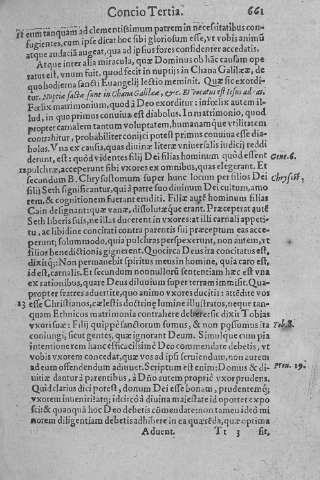 Concio Tertia. 661
& eum tanquam ad clementissimum patrem in necessitatibus con-
fugientes, cum ipse dicat hoc sibi gloriosum esse, vt vobis animũ
atque audaciã augeat, qua ad ipsius fores confidenter accedatis.
Atque inter alia miracula, quæ Dominus ob hãc causam ope
ratus est, vnum fuit, quod fecit in nuptijs in Chana Galilææ, de
quo hodierna sancti Euangelij lectio meminit. Quæ sic exordi-
tur. Nuptiæ factæ sunt in Chana Galilææ, &c. Et vocatus est Iesus ad eas.
Fœlix matrimonium, quod à Deo exorditur: infœlix autem il-
lud, in quo primus conuiua est diabolus. In matrimonio, quod
propter carnalem tantum voluptatem, humanamque vtilitatem
contrahitur, probabiliter conijci potest primus conuiua esse dia-
bolus. Vna ex causis, quas diuinæ literæ vniuersalis iudicij reddi
derunt, est: quòd videntes filij Dei filias hominum quòd essent Gene. 6.
12 pulchræ, acceperunt sibi vxores ex omnibus, quas elegerant. Et
secundum B. Chrysostomum super hunc locum per filios Dei Chrysost,
filij Seth significantur, qui à patre suo diuinum Dei cultum, amo
rem, & cognitionem fuerant eruditi. Filiæ autẽ hominum filias
Cain designant: quæ vanæ, dissolutæque erant. Præceperat autẽ
Seth liberis suis, ne illas ducerent in vxores: at illi carnali appeti-
tu, ac libidine concitati contra parentis sui præceptum eas acce-
perunt; solummodo, quia pulchras perspexerunt, non autem, vt
filios benedictionis gignerent. Quocirca Deus ira concitatus est,
dixitque: Non permanebit spiritus meus in homine, quia caro est,
id est, carnalis. Et secundum nonnullorũ sententiam hæc est vna
ex rationibus, quare Deus diluuium super terram immisit. Qua-
propter fratres aduertite, quo animo vxores ducitis: attẽdite vos
13 esse Christianos, cælestis doctrinę lumine illustratos, neque tan-
quam Ethnicos matrimonia contrahere debere: sic dixit Tobias Tob. 8.
vxori suæ: Filij quippe sanctorum sumus, & non possumus ita
coniungi, sicut gentes, quæ ignorant Deum. Simulque cum pia
intentione rem hanc efficacissimè Deo commendare debetis, vt
vobis vxorem concedat, quæ vos ad ipsi seruiendum, non autem
ad eum offendendum adiuuet. Scriptum est enim: Domus & di- Prou. 19.
uitiæ dantur à parentibus, à Dño autem propriè vxor prudens.
Quid clarius dici potest, domum Dei esse bonam, prudentemque
vxorem inuenire: itaque; idcirco à diuina maiestate id oportet expo
sci: & quanquã hoc Deo debetis cõmendare: non tamen ideò mi
norem diligentiam debetis adhibere in ea quærẽda, quæ optima
Aduent. Tt 3 sit,